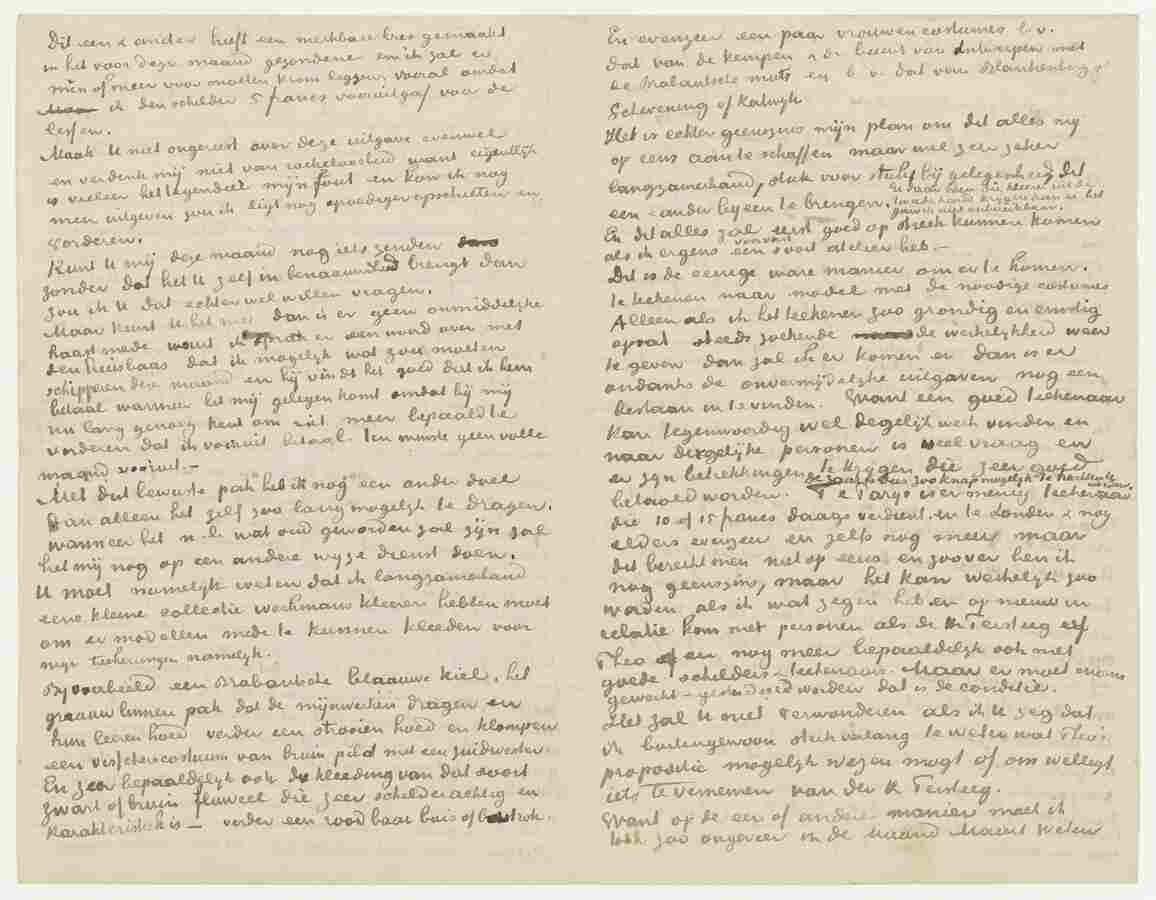 Dit een & ander heeft een merkbare bres gemaakt
in het voor deze maand gezondene en ik zal er
min of meer voor moeten krom leggen, vooral omdat
ik den schilder 5 francs vooruitgaf voor de
lessen.
Maak U niet ongerust over deze uitgave evenwel
en verdenk mij niet van rockeloosheid want eigentlijk
is veeleer het tegendeel mijn fout en kon ik nog
meer uitgeven zou ik ligt nog spoediger opschieten en
vorderen.
Kunt U mij deze maand nog iets zenden
zonder dat het U zelf in benaauwdheid brengt dan
zou ik U dat echter wel willen vragen.
Maar kunt U het niet dan is er geen onmiddelijke
haast mede want ik sprak er een woord over met
den huisbaas dat ik mogelijk wat zou moeten
schipperen deze maand en hij vindt het goed dat ik hem
betaal wanneer het mij gelegen komt omdat hij mij
nu lang genoeg kent om niet meer bepaald te
vorderen dat ik vooruit betaal. Ten minste geen volle
maand vooruit. —
Met dat bewuste pak heb ik nog een ander doel
dan alleen het zelf zoo lang mogelijk te dragen.
Wanneer het n.l. wat oud geworden zal zijn zal
het mij nog op een andere wijze dienst doen.
U moet namelijk weten dat ik langzamerhand
eene kleine collectie werkmans kleeren hebben moet
om er modellen mede te kunnen kleeden voor
mijn teekeningen namelijk.
Bijvoorbeeld een Brabantsche blaauwe kiel, het
graauw linnen pak dat de mijnwerkers dragen en
hun leeren hoed verder een strooien hoed en klompen
een visscherscostuum van bruin pilo met een zuidwester.
En zeer bepaaldelijk ook de kleeding van dat soort
zwart of bruin fluweel die zeer schilderachtig en
karakteristiek is — verder een rood baai buis of borstrok.
En evenzeer een paar vrouwencostumes b.v.
dat van de Kempen & de buurt van Antwerpen met
de Brabantsche muts en b.v. dat van Blankenberg of
Schevening of Katwijk
Het is echter geenszins mijn plan om dit alles mij
op eens aan te schaffen maar wel zeer zeker
langzamerhand, stuk voor stuk bij gelegenheid dit
een & ander bijeen te brengen.
En daar men die kleeren uit de
tweede hand krijgen kan is het
gansch niet onbereikbaar.
En dit alles zal eerst goed op streek kunnen komen
als ik ergens een soort atelier heb. —
voor vast
Dit is de eenige ware manier om er te komen.
te teekenen naar model met de noodige costumes
Alleen als ik het teekenen zoo grondig en ernstig
opvat steeds zoekende de werkelijkheid weer
te geven dan zal ik er komen en dan is er
ondanks de onvermijdelijke uitgaven nog een
bestaan in te vinden. Want een goed teekenaar
kan tegenwoordig wel degelijk werk vinden en
naar dergelijke personen is veel vraag en
er zijn betrekkingen te krijgen die zeer goed
betaald worden.
de zaak is dus zoo knap mogelijk te trachten te
worden.
Te Parijs is er menig teekenaar
die 10 of 15 francs daags verdient en te Londen & nog
elders evenzeer en zelfs nog meer, maar
dit bereikt men niet op eens en zoover ben ik
nog geenszins, maar het kan werkelijk zoo
worden als ik wat zegen heb en op nieuw in
relatie kom met personen als de Hr Tersteeg of
Theo en nog meer bepaaldelijk ook met
goede schilders & teekenaars. Maar er moet enorm
gewerkt & gestudeerd worden dat is de conditie.
Het zal U niet verwonderen als ik U zeg dat
ik buitengewoon sterk verlang te weten wat Theo's
propositie mogelijk wezen mogt of om welligt
iets te vernemen van den Hr Tersteeg.
Want op de een of andere manier moet ik
toch zoo ongeveer in de maand Maart weten